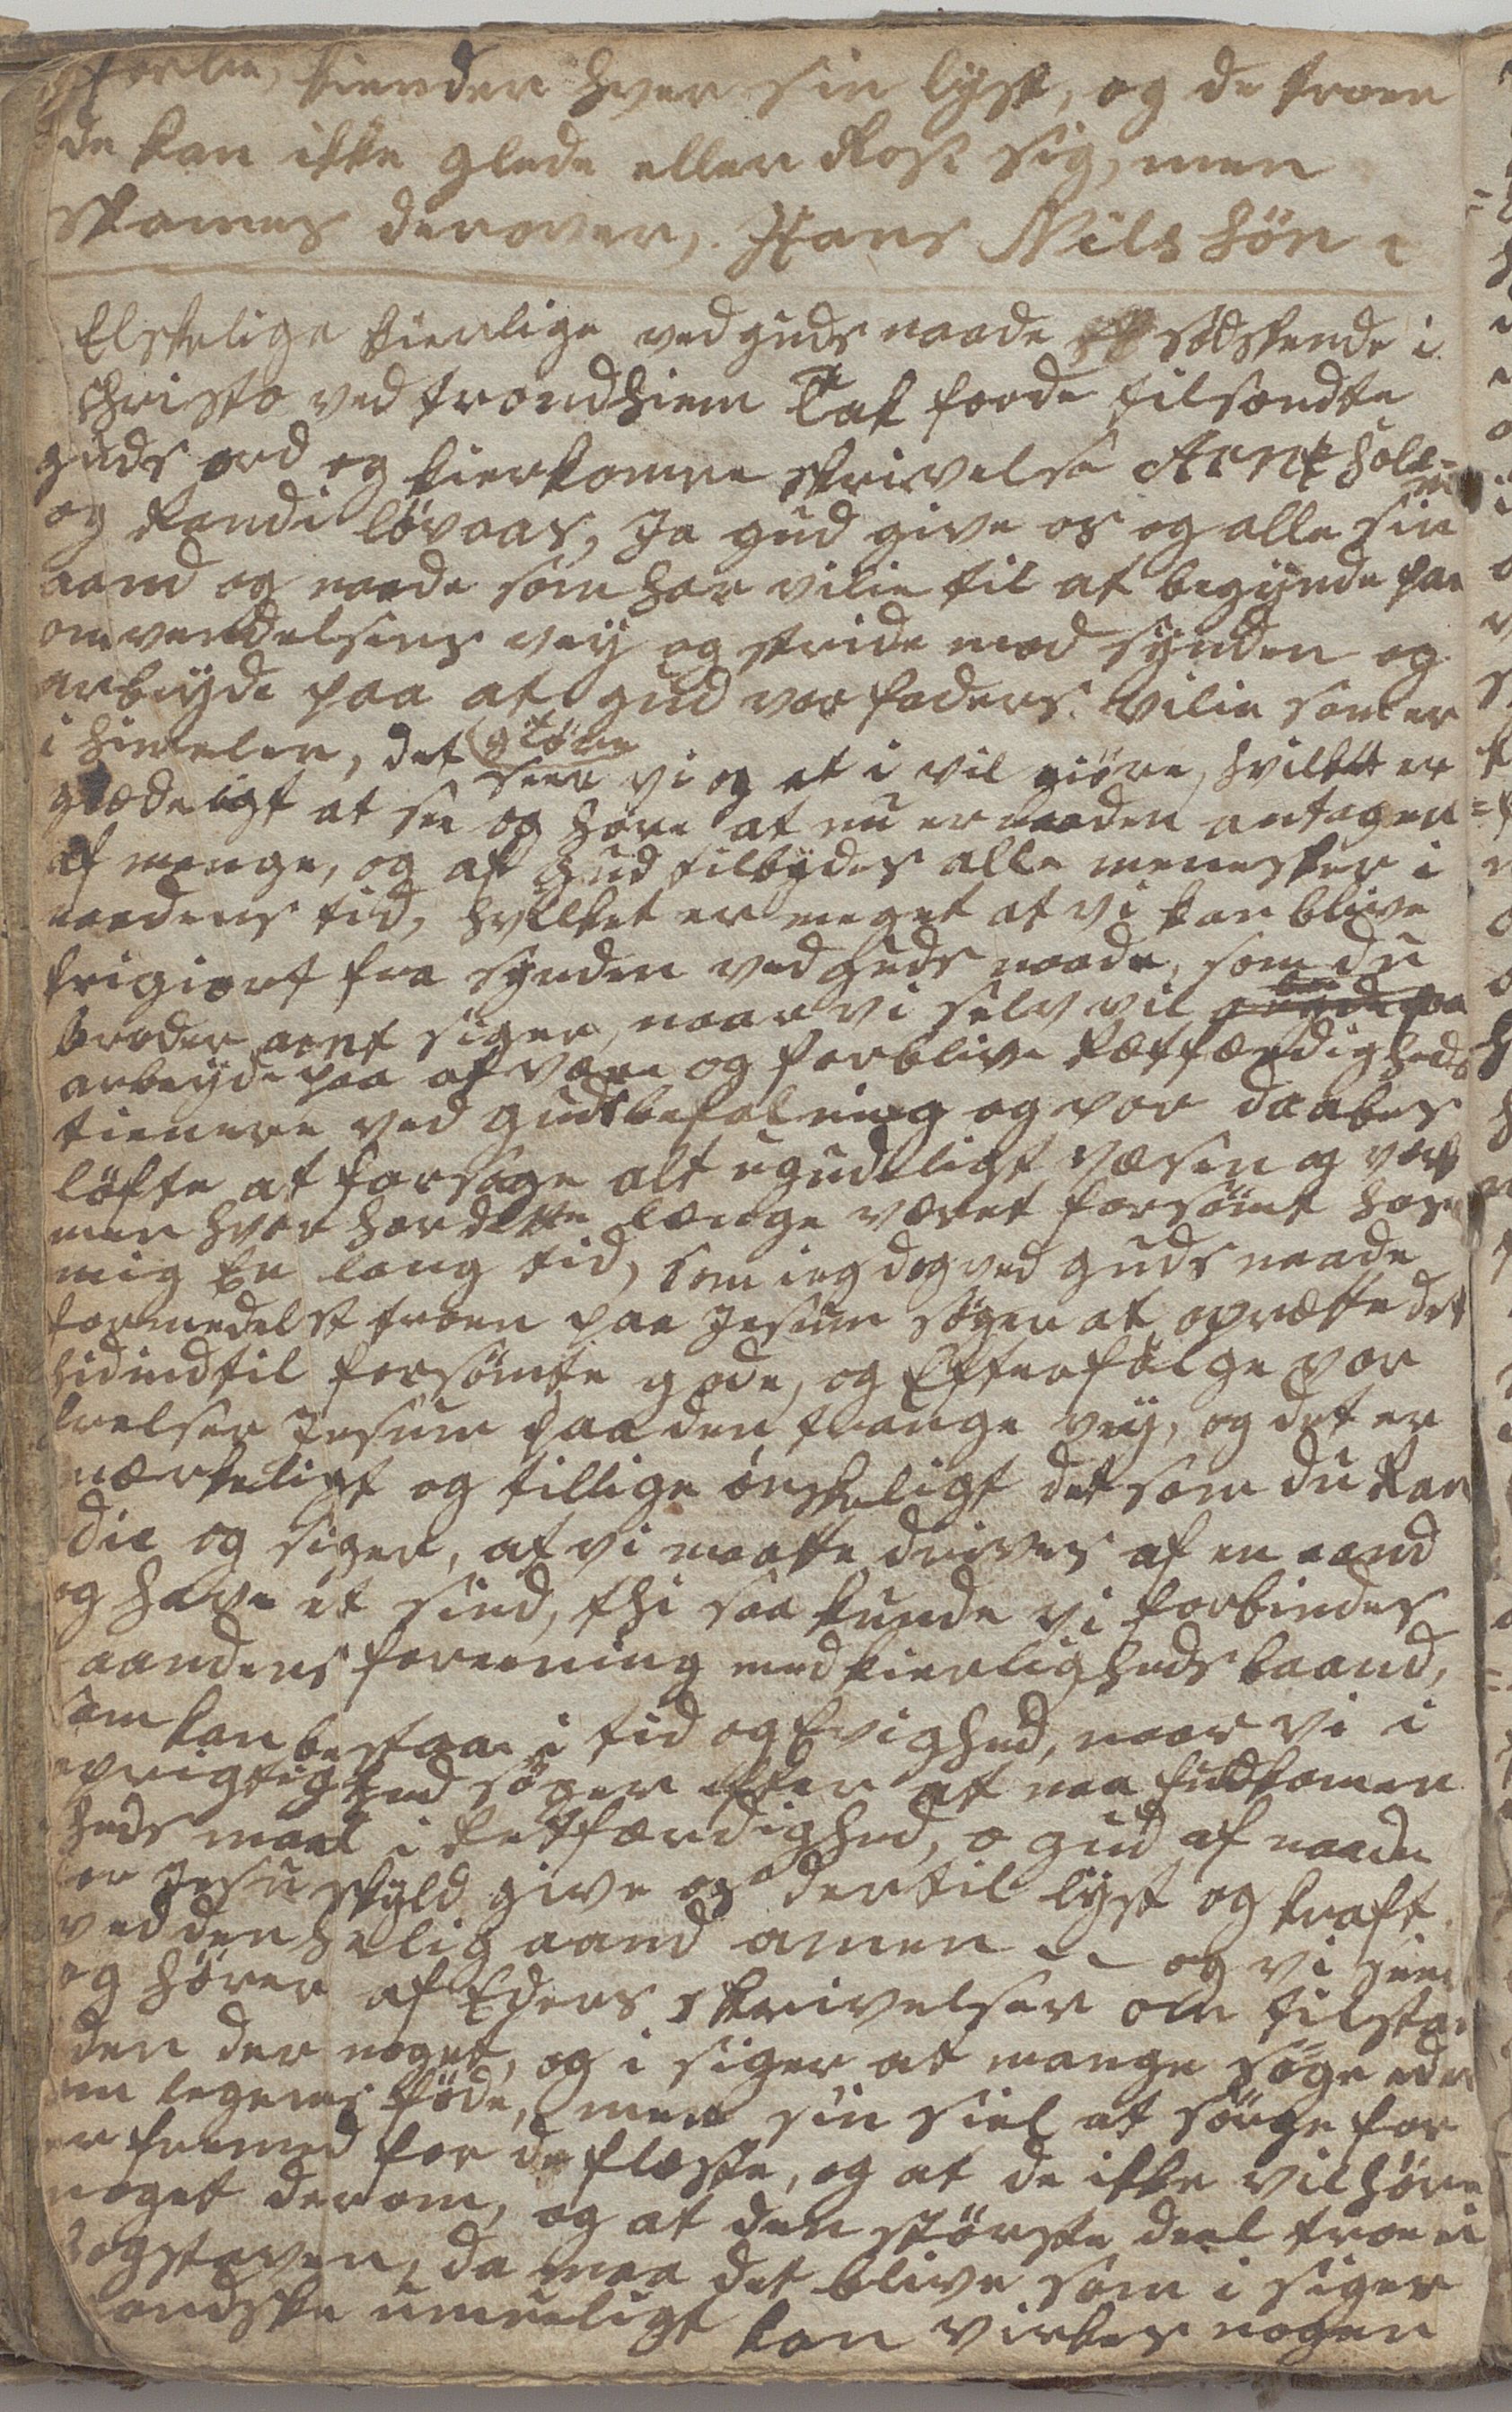 kiender hver sin lyst, og de troen
de kan ikke glede eller Rose sig, men
skames derover, Hans Nils Søn
Elskelige kierlige ved guds naade sødskende i
Christo ved trondhiem Tak forde tilsendte
guds ord og kierkomne skrivelse Arnt Sole=
og Randi løvaas, Ja gud give os og alle sin
aand og naade som har vilie til at begynde paa
omvendelsens vey og stride mod synden og
arbeyde paa at giøre gud vor faders vilie som er
i himelen, det seer vi og at i vil giøre, hvilket er
glædeligt at see og høre at nu er naaden antagen
af mange, og af gud tilbydes alle menesker i
naadens tid, hvilket er meget at vi kan blive
frigiort fra synden ved guds naade, som du
broder arnt siger, naar vi selv vil
arbeyde paa at være og forblive Retfærdigheds
tienere ved guds befalning og vor daabes
løfte at forsage alt ugudeligt væsen og verk
men hvor har dette længe været forsømt hos
mig En lang tid, som ieg dog ved guds naade
formedelst troen paa Jesum søger at oprætte det
hidindtil forsømte gode, og Efterfølge vor
frelser Jesum paa den trange vey, og det er
mærkeligt og tillige ønskeligt det som du Ran
die og siger, at vi maatte drives af en aand
og have et sind, thi saa kunde vi forbindes
aandens foreening med kierligheds baand,
som kan bestaa i tid og Evighed, naar vi i
oprigtighed søger efter at naa fuldkomen
heds maal i Retfærdighed, o gud af naade
for Jesu skyld give os dertil lyst og kraft
ved den helig aand amen og vi seer
og hører af Eders skrivelser om tilstan
den der noget, og i siger at mange søge eder
om legems føde, men sin siel at sørge for
er fremed for de fleste, og at de ikke vil høre
noget derom, og at den største deel troe ei
bogstaven, da maa det blive som i siger
gandske umueligt kan virkes nogen